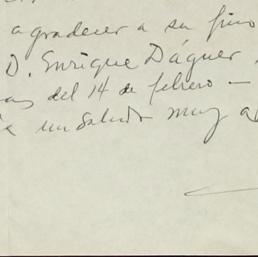 agradecer a su fino
D. Enrique Dáguer
as del 14 de febrero —
un saludo muy a